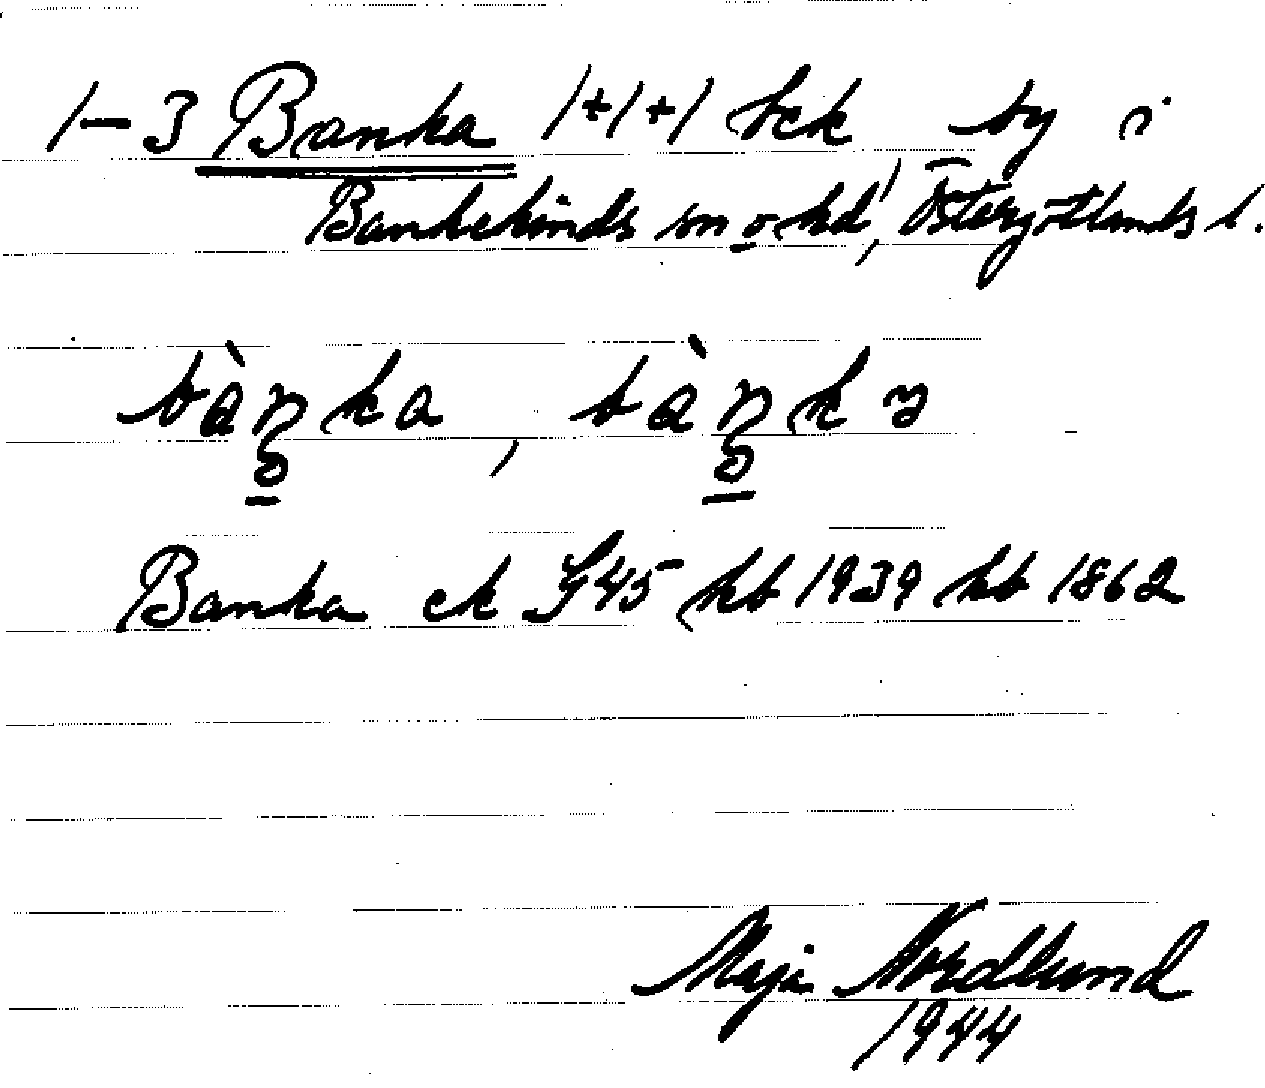 1-3 Banka 1+1+1 hek by i
Bankekinds sn o hd, Östergötlands l.
bàŋka, bàŋkɜ
Banka ek G45 kb 1939 hb 1862
Maja Nordlund
1944